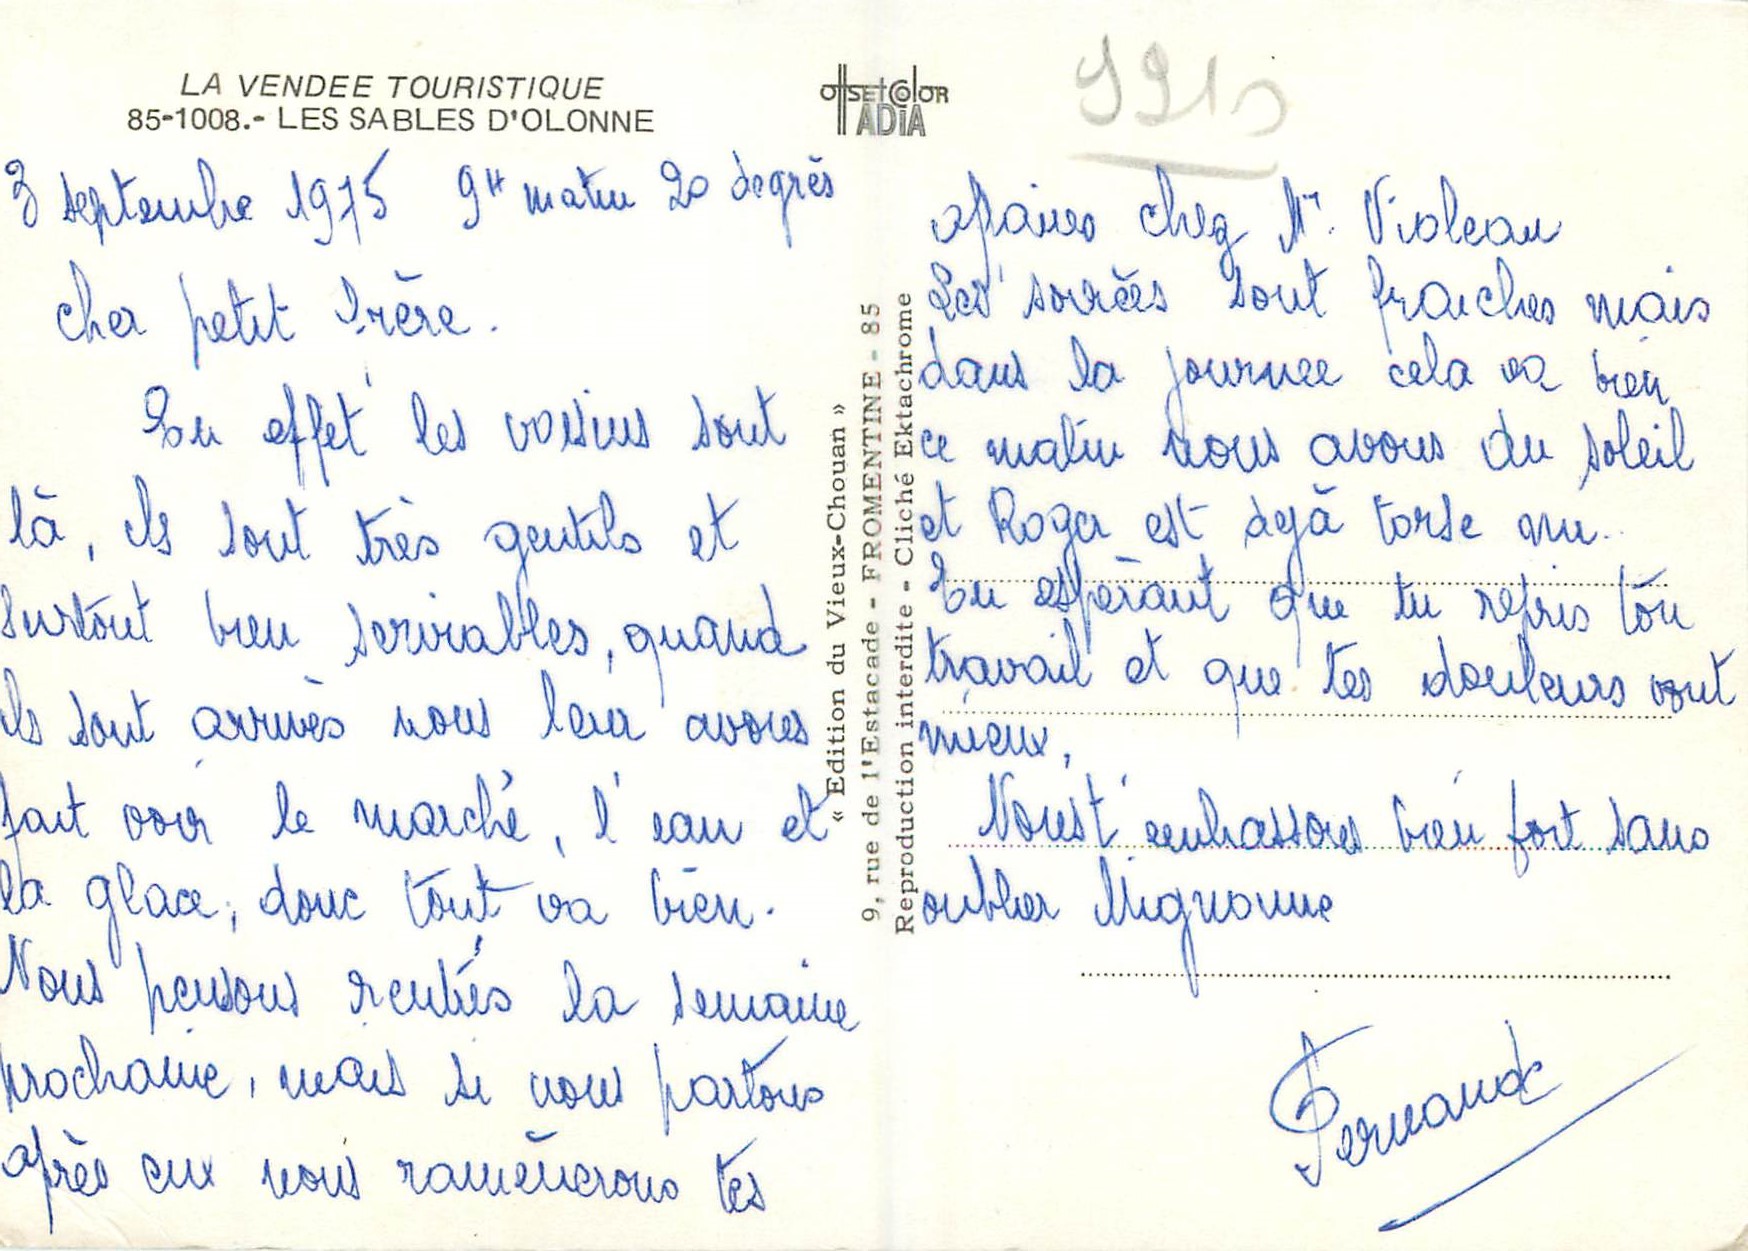 LA VENDEE TOURISTIQUE
85-1008.- LES SABLES D'OLONNE
3 septembre 1975 9H matin 20 degrès
cher petit Frère.
En effet les voisins sont
là, ils sont très gentils et
surtout bien serviables, quand
ils sont arrivés nous leur avons
fait voir le marché, l'eau et
la glace, donc tout va bien.
Nous pensons rentrés la semaine
prochaine, mais si nous partons
après eux nous ramènerons tes
offset color
ADIA
« Edition du Vieux-Chouan »
9, rue de l'Estacade - FROMENTINE - 85
Reproduction interdite - Cliché Ektachrome
affaires chez Mr. Violeau
Les soirées sont fraiches mais
dans la journee cela va bien
ce matin nous avons du soleil
et Roger est dejà torse nu.
En espèrant que tu repris ton
travail et que tes douleurs vont
mieux,
Nous t'embassons bien fort sans
oublier Mignonne
Fernande